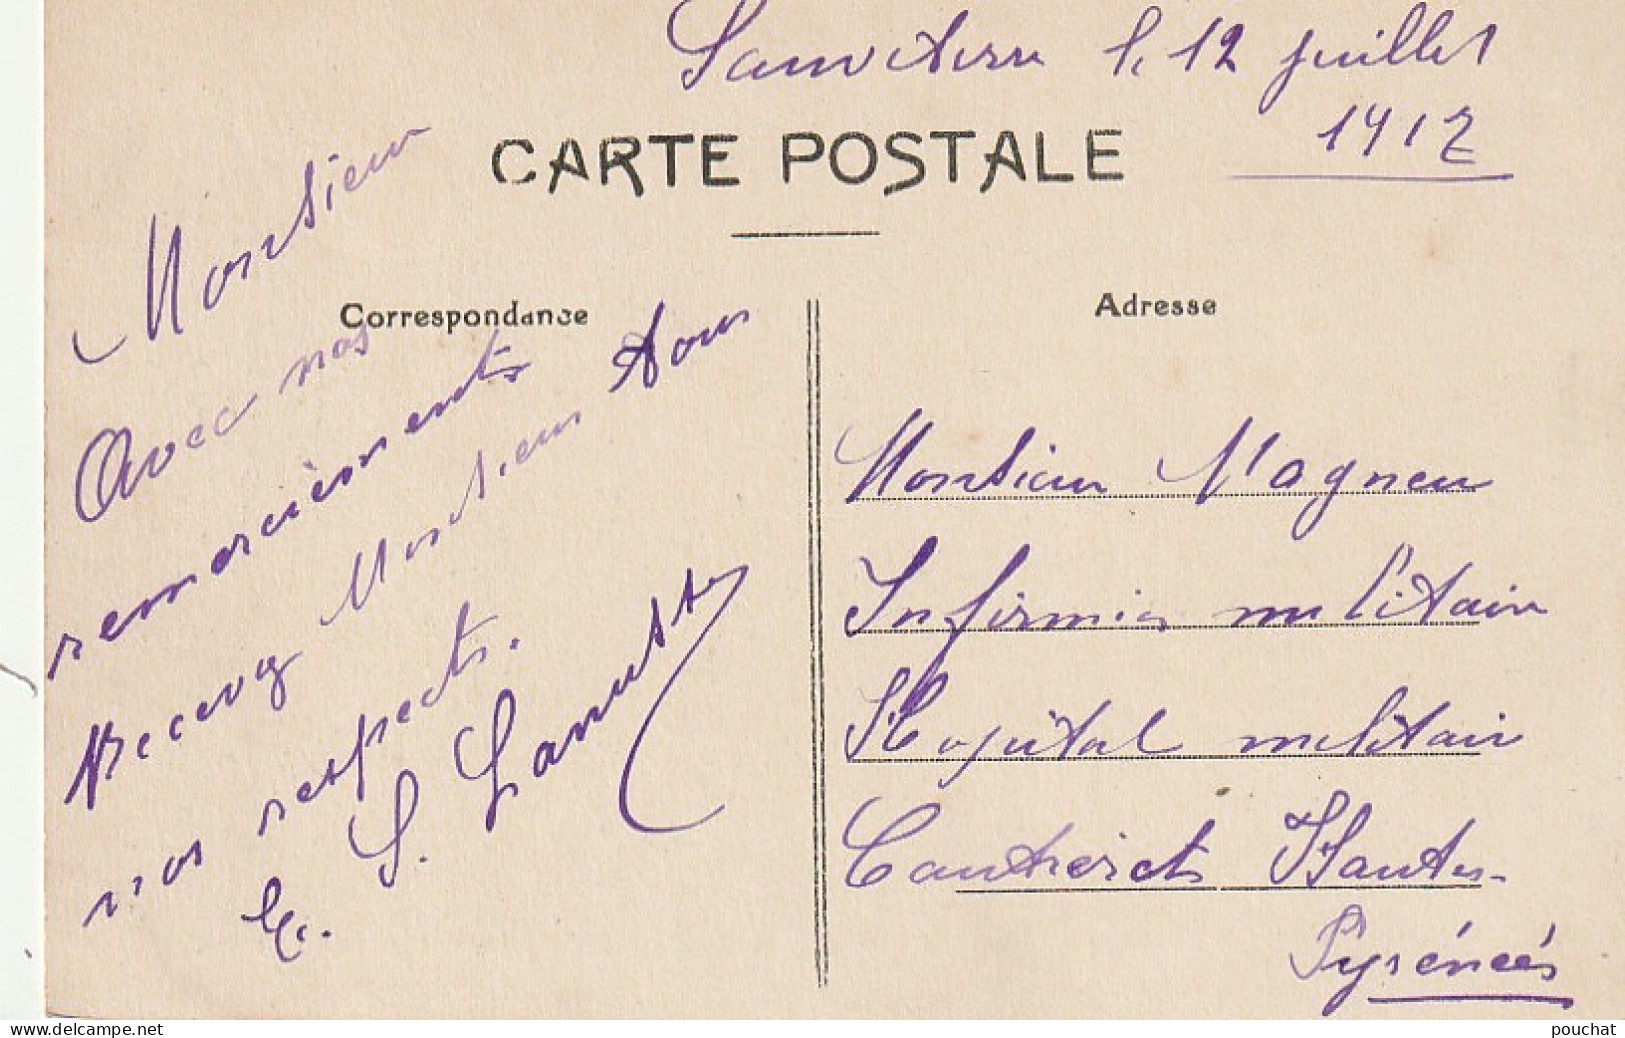 Sauveterre le 12 juillet
1917
CARTE POSTALE
Correspondance
Monsieur
Avec nos
remerciements
Recevez Monsieur Tous
nos respects.
S. Lanusse
Adresse
Monsieur Magneu
Infirmier militair
Hopital militair
Cauterets Hautes-
Pyrénées
www.delcampe.net
pouchat